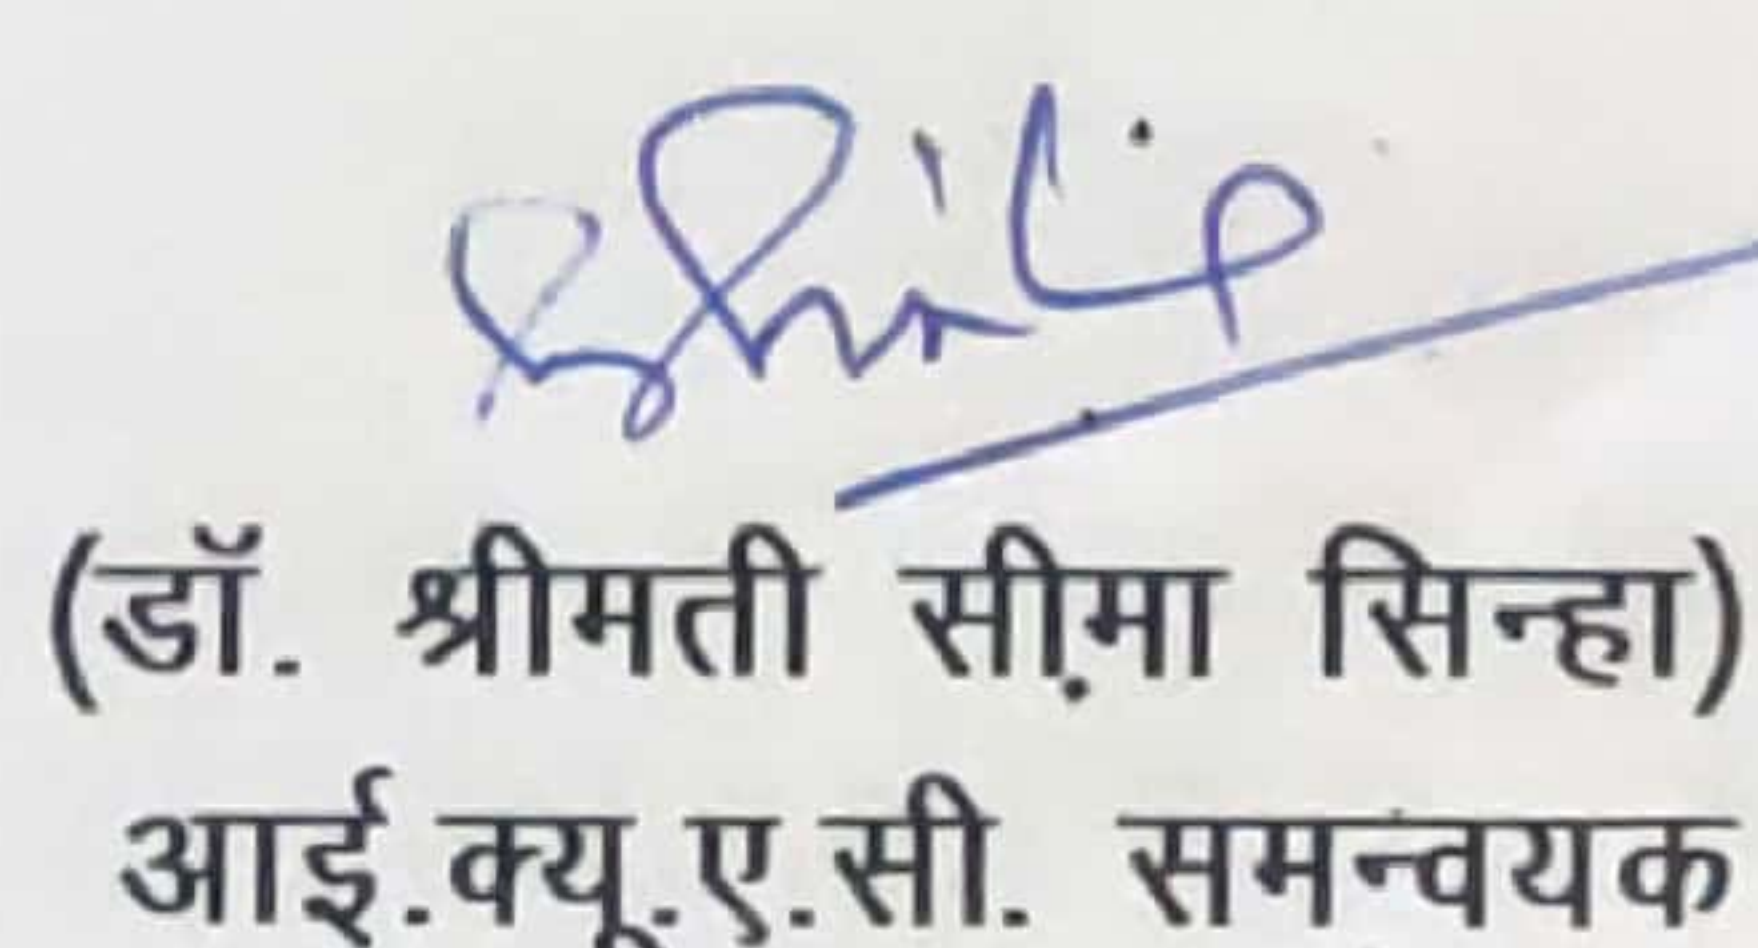 (डॉ. श्रीमती सीमा सिन्हा)
आई.क्यू.ए.सी. समन्वयक